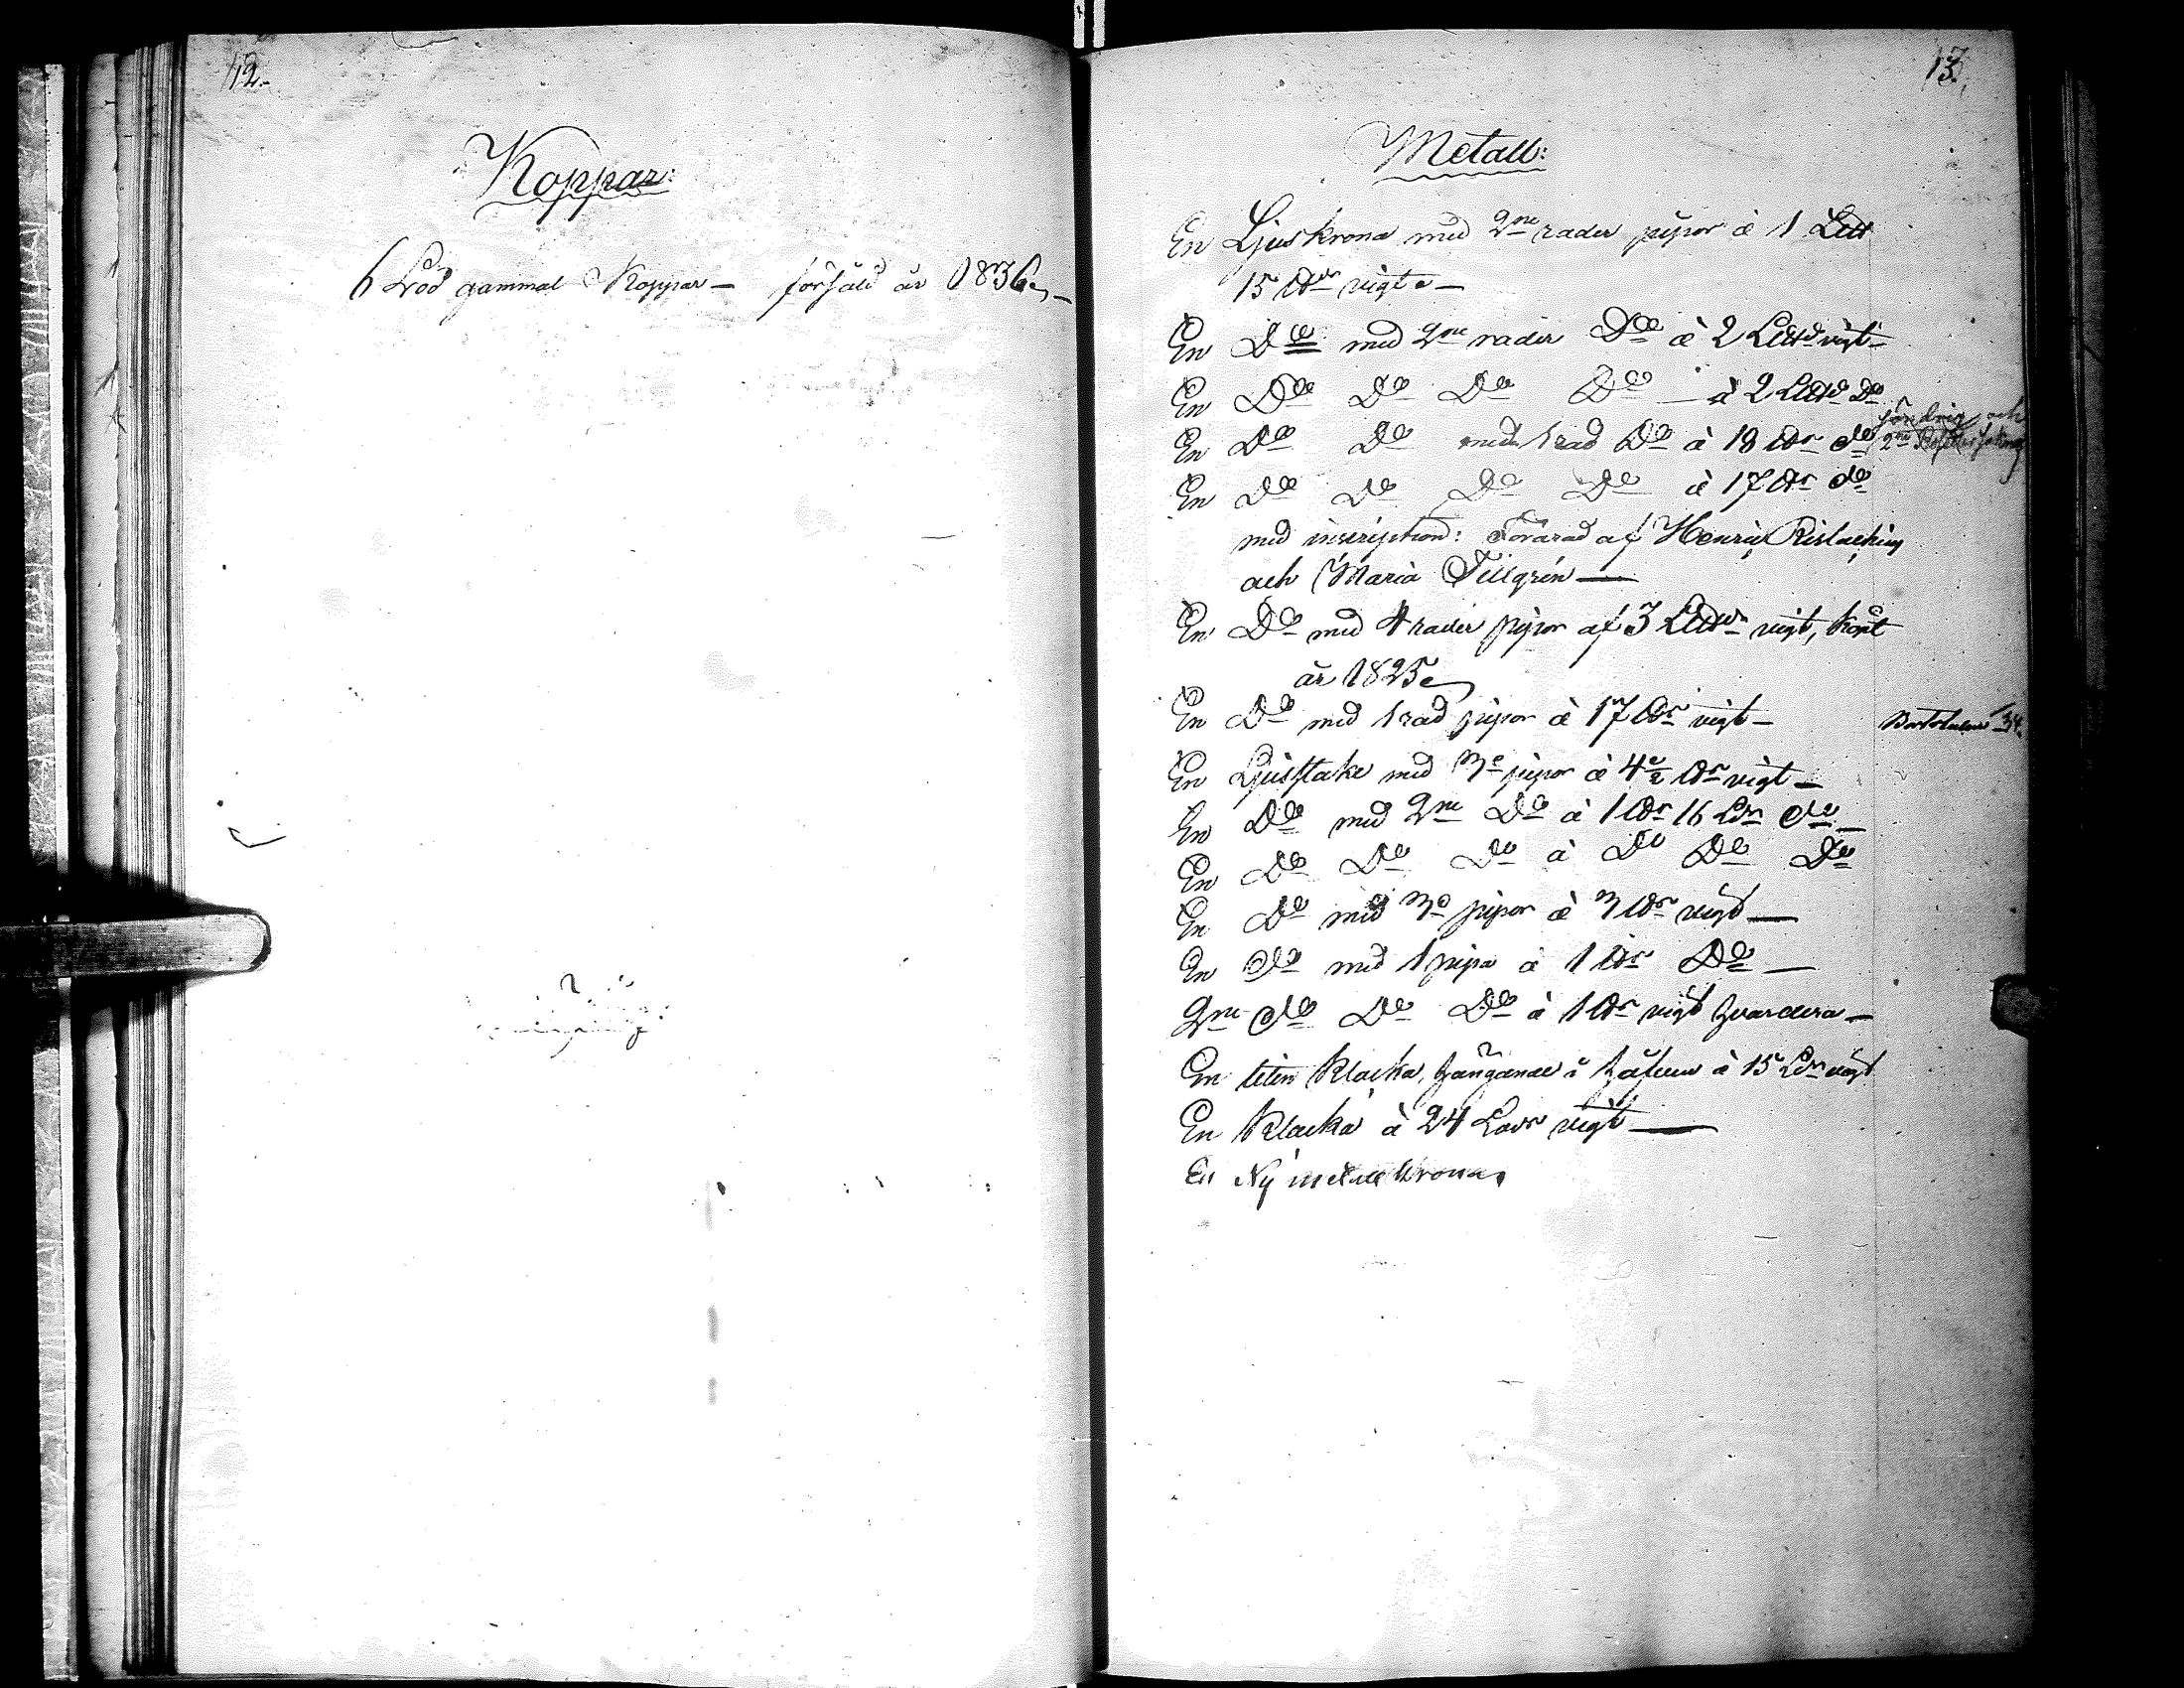 12.
Koppar:
6 Lod gammal Koppar — försåld år 1836. —
13.
Metall:
En Ljuskrona med 2ne rader pipor à 1 Lttt
15 ttr vigt. —
En Do med 2ne rader Do à 2 Lttr vigt —
En Do Do Do Do — à 2 Lttr Do
En Do Do med 1 rad Do à 18 ttr do och
2ne
En Do Do Do Do à 17 ttr do
med inscription: Förärad af Henric Rislachius
och Maria Tillgrén —
En Do med 4 rader pipor af 3 Lttr vigt, köpt
år 1825.
En Do med 1 rad pipor à 17 ttr vigt — Bortstulen 34.
En Ljusstake med 3e pipor à 4 1/2 ttr vigt —
En Do med 2ne Do à 1 ttr 16 Ldr do —
En Do Do Do à Do Do Do
En Do med 3e pipor à 3 ttr vigt —
En do med 1 pipa à 1 ttr Do —
2ne do Do Do à 1 ttr vigt hvardera —
En liten Klocka, hängande i håfven à 15 Ldr vigt
En Klocka à 24 Lodr vigt —
En Ny metall krona.